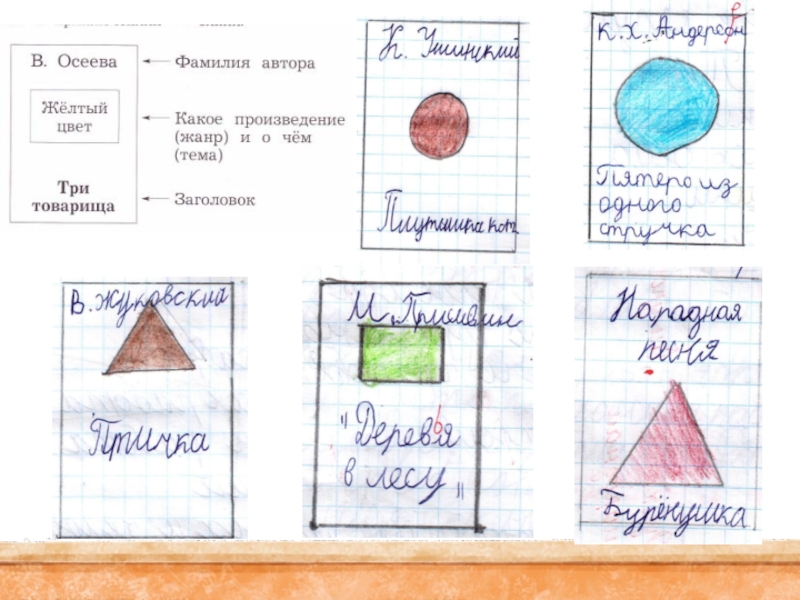 В. Осеева
Фамилия автора
Жёлтый
цвет
Какое произведение
(жанр) и о чём
(тема)
Три
товарища
Заголовок
К. Ушинский
Плутишка кот
К. Х. Андерсон
е
Пятеро из
одного
стручка
В. Жуковский
Птичка
М. Пришвин
"Деревья
в лесу"
Нарадная
песня
Бурёнушка